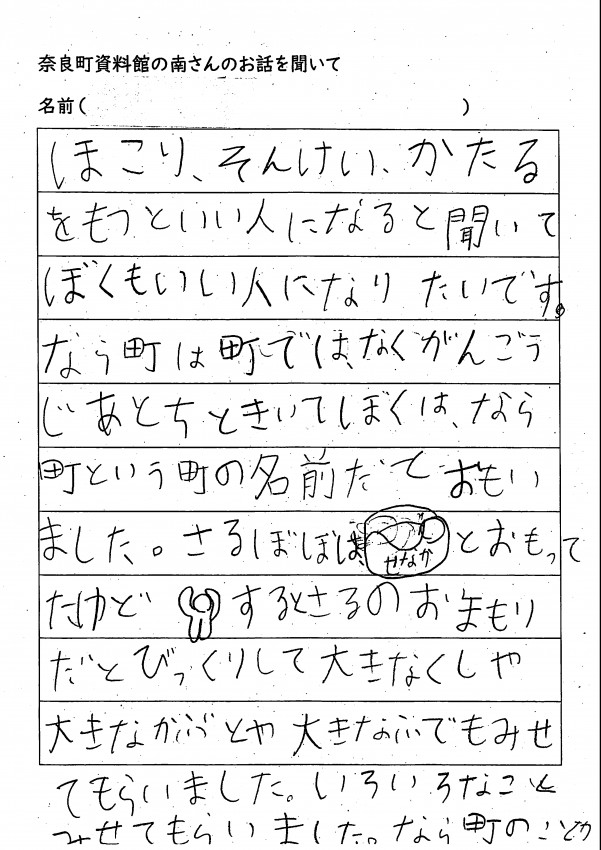 奈良町資料館の南さんのお話を聞いて
名前( )
ほこり、そんけい、かたる
をもつといい人になると聞いて
ぼくもいい人になりたいです。
なら町は町では、なくがんごう
じあとちときいてぼくは、なら
町という町の名前だておもい
ました。さるぼぼは、せなかとおもって
たけど するとさるのおまもり
だとびっくりして大きなくしや
大きながぶとや大きなふでもみせ
てもらいました。いろいろなこと
みせてもらいました。なら町のことが